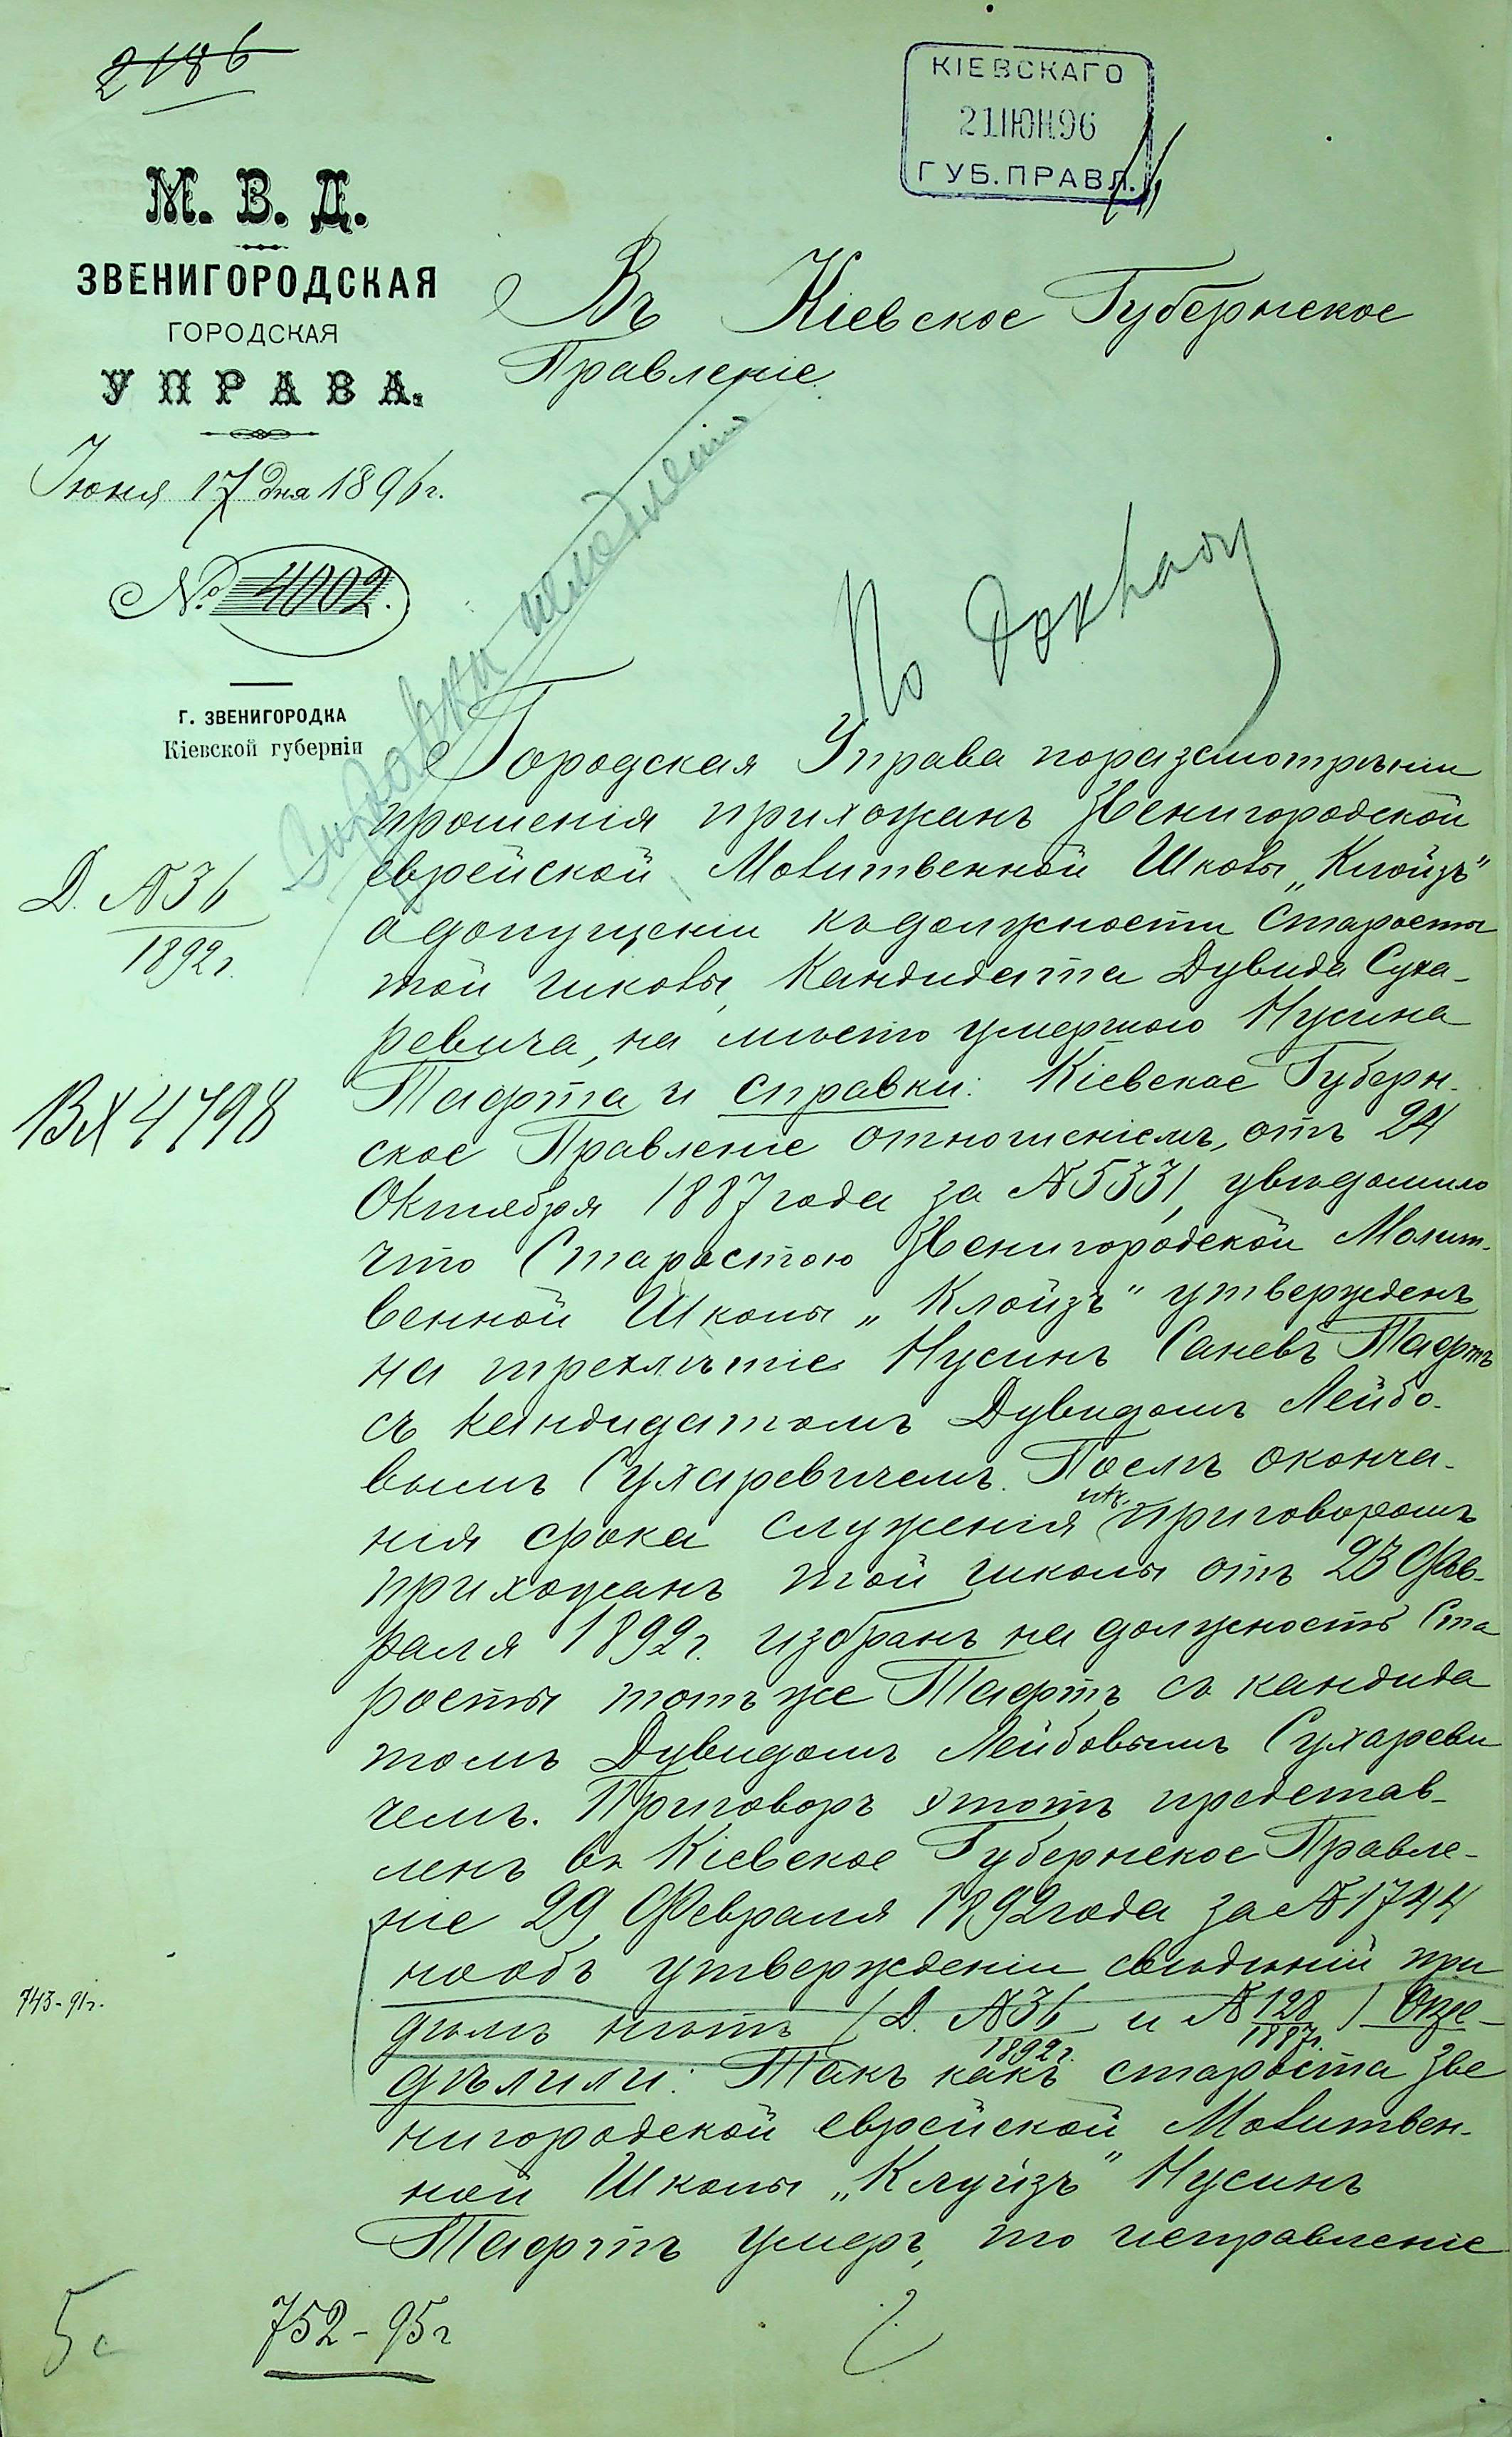 2186
КІЕВСКАГО
21 ІЮН 96
ГУБ. ПРАВЛ.
М. В. Д.
ЗВЕНИГОРОДСКАЯ
ГОРОДСКАЯ
УПРАВА.
Іюня 17 дня 1896 г.
№ 4002.
Г. ЗВЕНИГОРОДКА
Кіевской губерніи
Въ Кіевское Губернское
Правленіе
Справки
По докладу
Д. №36
1892 г.
Вх 4798
Городская Управа по разсмотрѣніи
прошенія прихожанъ Звенигородской
еврейской Молитвенной Школы „Клойзъ"
о допущеніи къ должности Старосты
той школы, Кандидата Дувида Суха-
ревича, на мѣсто умершаго Нусина
Тафта и справки: Кіевское Губерн-
ское Правленіе отношеніемъ, отъ 24
Октября 1887 года за №5331, увѣдомило
что Старостою Звенигородской Молит-
венной Школы „Клойзъ" утвержденъ
на трехлѣтіе Нусинъ Саневъ Тафтъ
съ кандидатомъ Дувидомъ Лейбо-
вымъ Сухаревичемъ. Послѣ оконча-
нія срока служенія ихъ, приговоромъ
прихожанъ той школы отъ 23 Фев-
раля 1892 г. избранъ на должность Ста
росты тотъ же Тафтъ съ кандида
томъ Дувидомъ Лейбовымъ Сухареви
чемъ. Приговоръ этотъ представ-
ленъ въ Кіевское Губернское Правле-
ніе 29 Февраля 1892 года за №1744
но объ утвержденіи свѣдѣній при
дѣлѣ нѣтъ (Д. №36/1892 г. и №128/1887 г.) Опре-
дѣлили: Такъ какъ староста Зве
нигородской еврейской Молитвен-
ной Школы „Клуйзъ" Нусинъ
Тафтъ умеръ, то исправленіе
743-91 г.
752-95 г
5 с